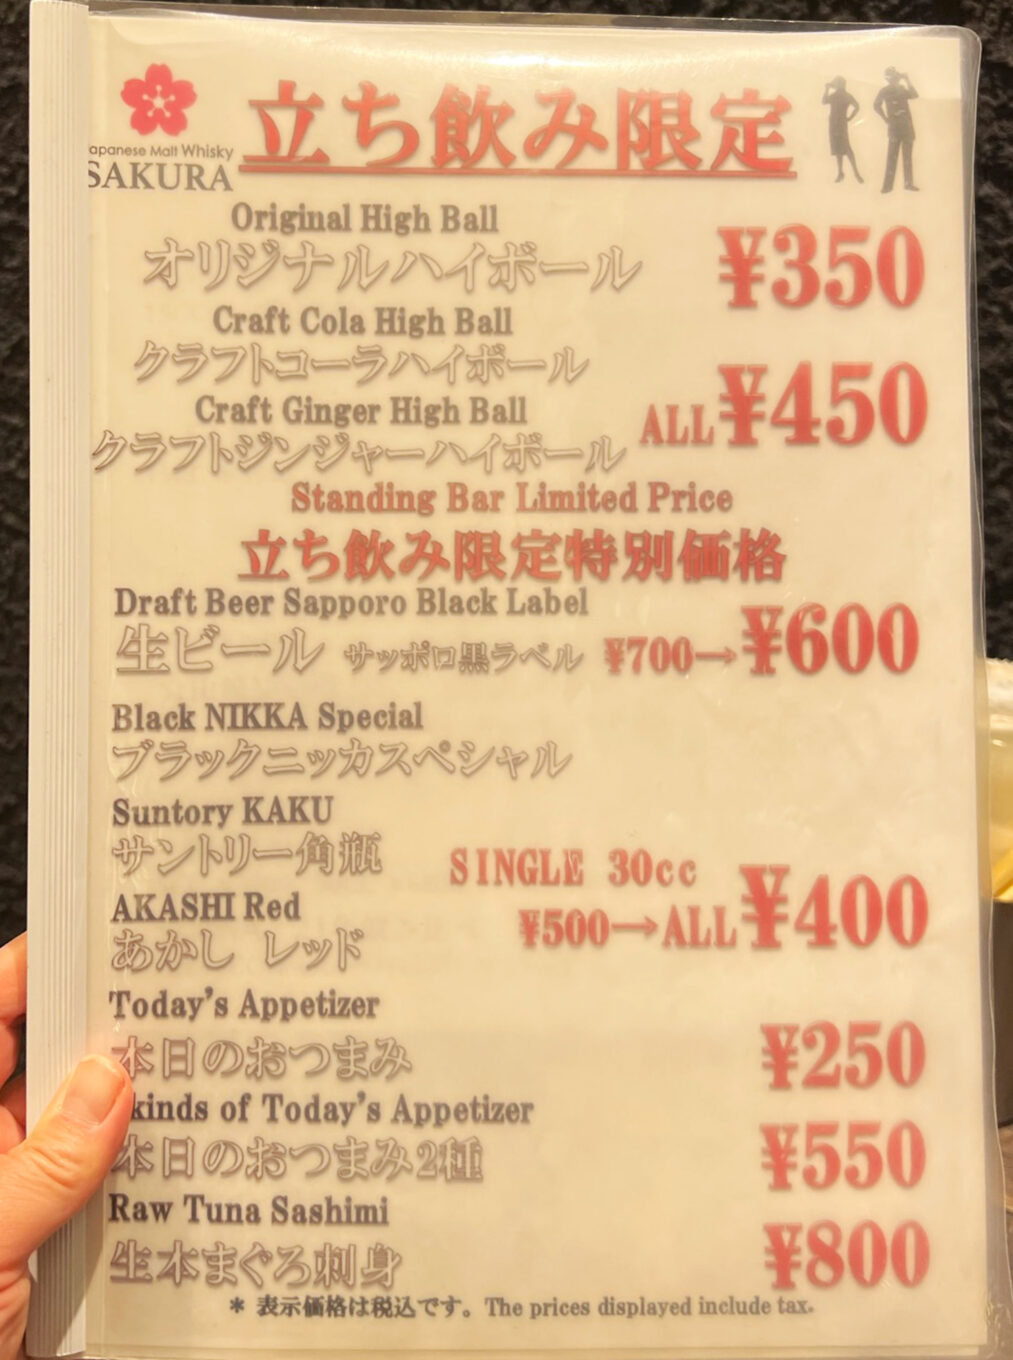 apanese Malt Whisky
SAKURA
立ち飲み限定
Original High Ball
オリジナルハイボール
¥350
Craft Cola High Ball
クラフトコーラハイボール
Craft Ginger High Ball
クラフトジンジャーハイボール
ALL¥450
Standing Bar Limited Price
立ち飲み限定特別価格
Draft Beer Sapporo Black Label
生ビール サッポロ黒ラベル ¥700→¥600
Black NIKKA Special
ブラックニッカスペシャル
Suntory KAKU
サントリー角瓶
SINGLE 30cc
AKASHI Red
あかし レッド
¥500→ALL¥400
Today's Appetizer
本日のおつまみ
¥250
kinds of Today's Appetizer
本日のおつまみ2種
¥550
Raw Tuna Sashimi
生本まぐろ刺身
¥800
* 表示価格は税込です。The prices displayed include tax.